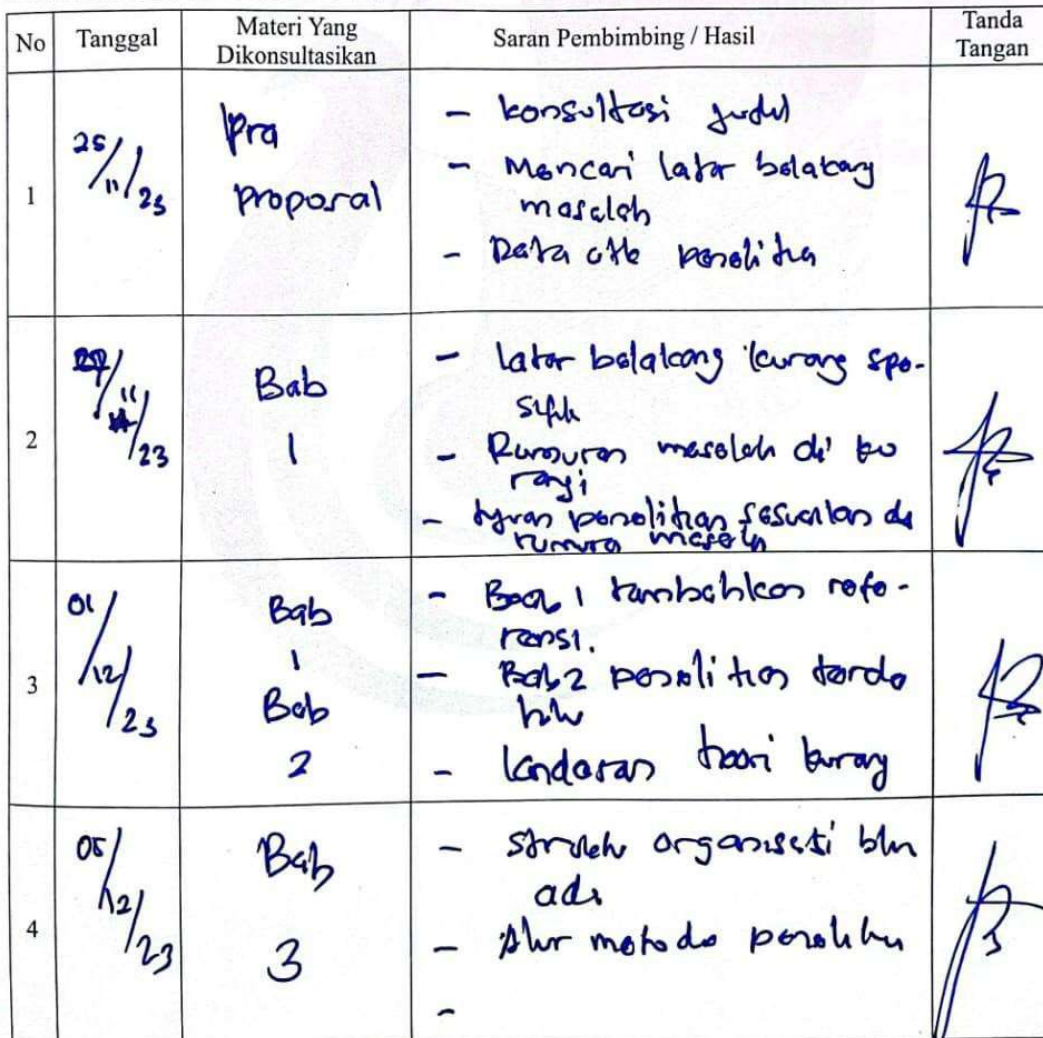 No Tanggal Materi Yang Dikonsultasikan Saran Pembimbing / Hasil Tanda Tangan
1 25/11/23 Pra
proposal
- konsultasi judul
- Mencari latar belakang
masalah
- Data penelitian
2 /11/23 Bab
1
- latar belakang kurang spe-
sifik
- Rumusan masalah di ku
rangi
- tujuan penelitian sesuaikan
rumusan masalah
3 01/12/23 Bab
1
Bab
2
- Bab 1 tambahkan refe-
rensi.
- Bab 2 penelitian terda
hulu
- landasan teori kurang
4 05/12/23 Bab
3
- struktur organisasi bln
ada
- Alur metode penelitian
-